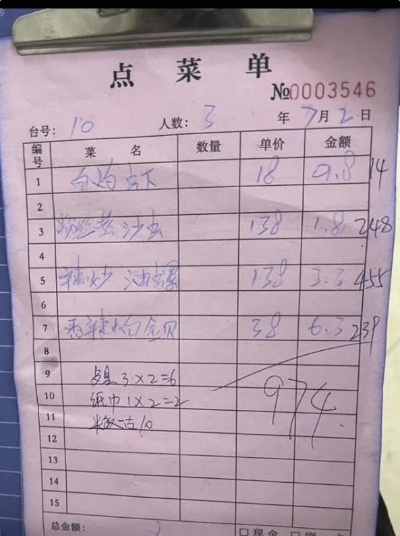 点菜单
№0003546
台号: 10 人数: 3 年 7月2日
编号 菜名 数量 单价 金额
1 白灼虾 18 0.8 14
2
3 粉丝蒸沙虫 138 1.8 248
4
5 辣炒油螺 138 3.3 455
6
7 香辣炒白金贝 38 6.3 239
8
9 3×2=6
974
10 纸巾1×2=2
11 10
12
13
14
15
总金额: